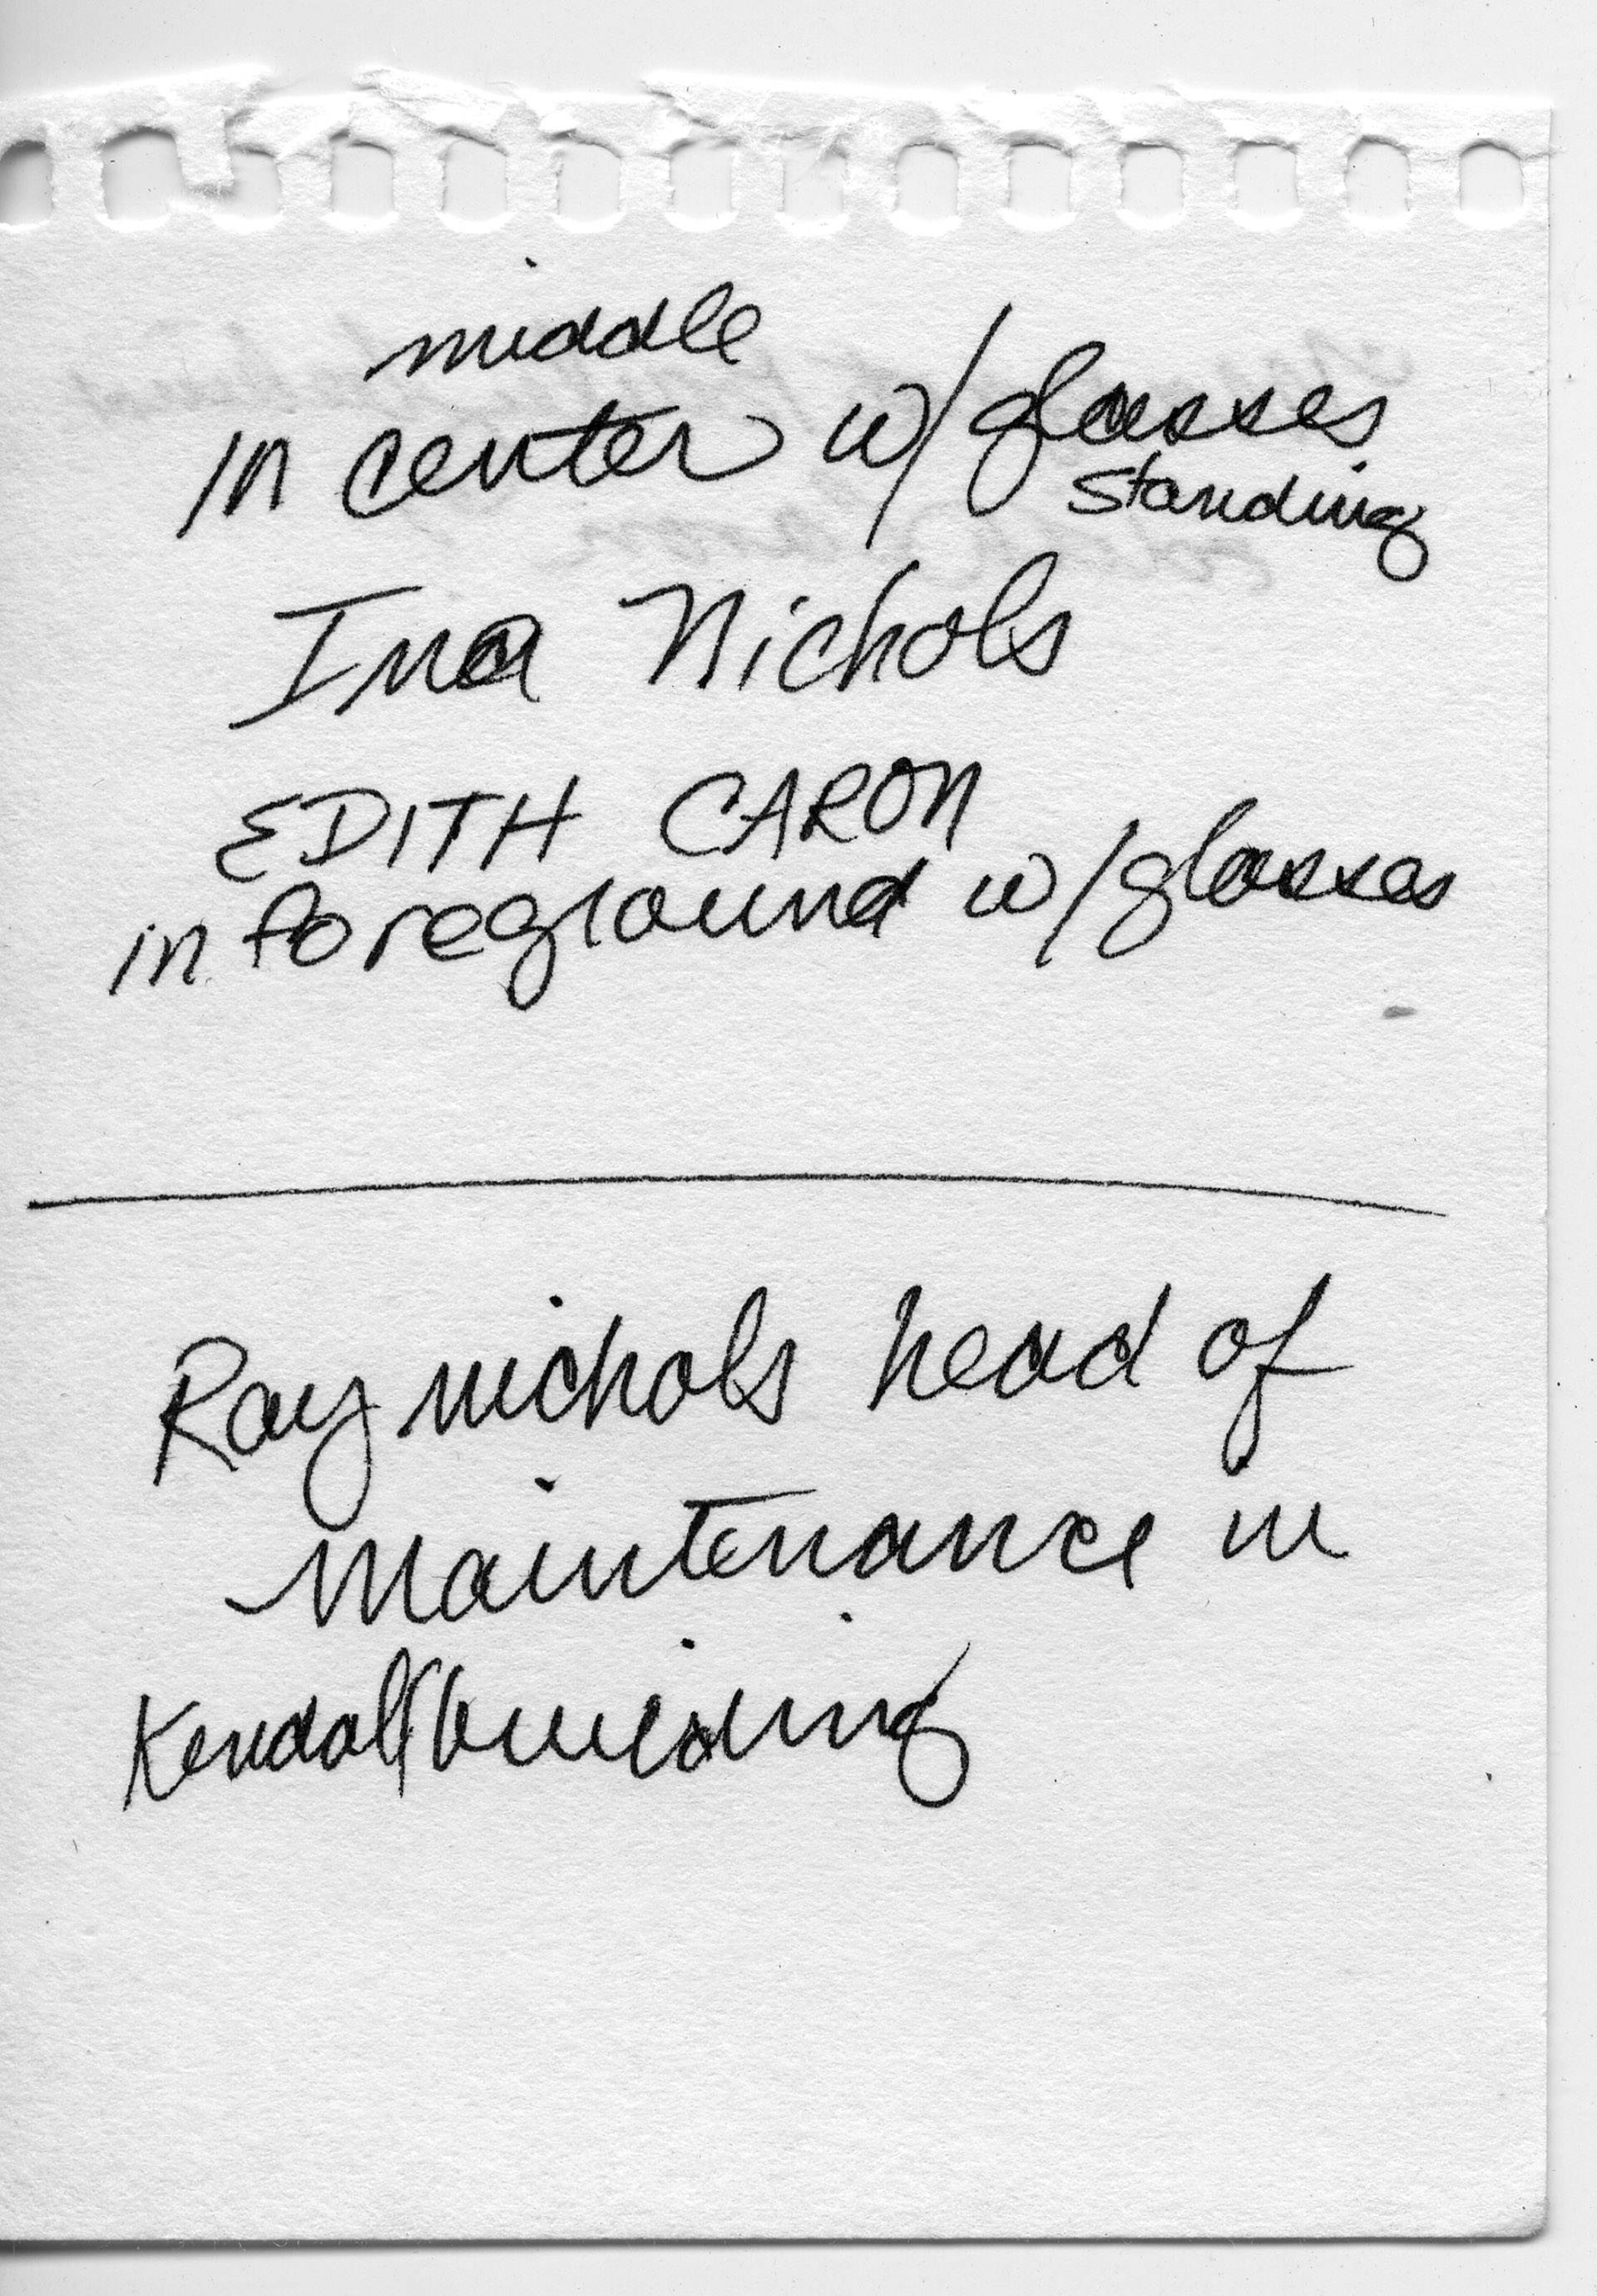 middle
in center w/glasses
standing
Ina Nichols
EDITH CARON
in foreground w/glasses
Ray nichols head of
Maintenance in
Kendall building